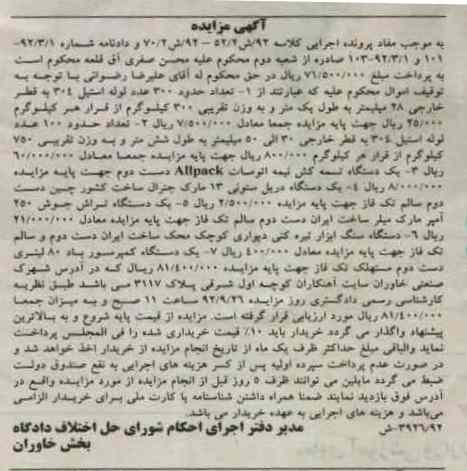 آگهی مزایده
به موجب مفاد پرونده اجرایی کلاسه ۹۲/ش۵۲/۲ – ۹۲/ش۷۰/۲ و دادنامه شماره ۹۲/۳/۱-
۱۰۱ و ۹۲/۳/۱-۱۰۳ صادره از شعبه دوم محکوم علیه محسن صفری آق قلعه محکوم است
به پرداخت مبلغ ۷۱/۵۰۰/۰۰۰ ریال در حق محکوم له آقای علیرضا رضوانی با توجه به
توقیف اموال محکوم علیه که عبارتند از ۱- تعداد حدود ۳۰۰ عدد لوله استیل ۳۰٤ به قطر
خارجی ۲۸ میلیمتر به طول یک متر و به وزن تقریبی ۳۰۰ کیلوگرم از قرار هر کیلوگرم
۲۵/۰۰۰ ریال جهت پایه مزایده جمعا معادل ۷/۵۰۰/۰۰۰ ریال ۲- تعداد حدود ۱۰۰ عدد
لوله استیل ۳۰٤ به قطر خارجی ۳۰ الی ۵۰ میلیمتر به طول شش متر و به وزن تقریبی ۷۵۰
کیلوگرم از قرار هر کیلوگرم ۸۰/۰۰۰ ریال جهت پایه مزایده جمعا معادل ۶۰/۰۰۰/۰۰۰
ریال ۳- یک دستگاه تسمه کش نیمه اتومات Allpack دست دوم جهت پایه مزایده
۸/۰۰۰/۰۰۰ ریال ٤- یک دستگاه دریل ستونی ۱۳ مارک جنرال ساخت کشور چین دست
دوم سالم تک فاز جهت پایه مزایده ۲/۵۰۰/۰۰۰ ریال ۵- یک دستگاه تراش جوش ۲۵۰
آمپر مارک میلر ساخت ایران دست دوم سالم تک فاز جهت پایه مزایده معادل ۲۱/۰۰۰/۰۰۰
ریال ۶- دستگاه سنگ ابزار تیره کنی دیواری کوچک محک ساخت ایران دست دوم و سالم
تک فاز جهت پایه مزایده معادل ۴۰۰/۰۰۰ ریال ۷- یک دستگاه کمپرسور باد ۸۰ لیتری
دست دوم مستهلک تک فاز جهت پایه مزایده ۸۱/٤۰۰/۰۰۰ ریال که در آدرس شهرک
صنعتی خاوران سایت آهنکاران کوچه اول شرقی پلاک ۳۱۱۷ می باشد طبق نظریه
کارشناسی رسمی دادگستری روز مزایده ۹۲/۹/۲۶ ساعت ۱۱ صبح و به میزان جمعا
۸۱/٤۰۰/۰۰۰ ریال مورد ارزیابی قرار گرفته است. مزایده از قیمت پایه شروع و به بالاترین
پیشنهاد واگذار می گردد خریدار باید ۱۰٪ قیمت خریداری شده را فی المجلس پرداخت
نماید والباقی مبلغ حداکثر ظرف یک ماه از تاریخ انجام مزایده از خریدار اخذ خواهد شد و
در صورت عدم پرداخت سپرده اولیه پس از کسر هزینه های اجرایی به نفع صندوق دولت
ضبط می گردد مایلین می توانند ظرف ۵ روز قبل از انجام مزایده از مورد مزایده واقع در
آدرس فوق بازدید نمایند ضمنا همراه داشتن شناسنامه یا کارت ملی برای خریدار الزامی
می‌باشد و هزینه های اجرایی به عهده خریدار می باشد.
۳۹۲۶/۹۲-ش مدیر دفتر اجرای احکام شورای حل اختلاف دادگاه
بخش خاوران